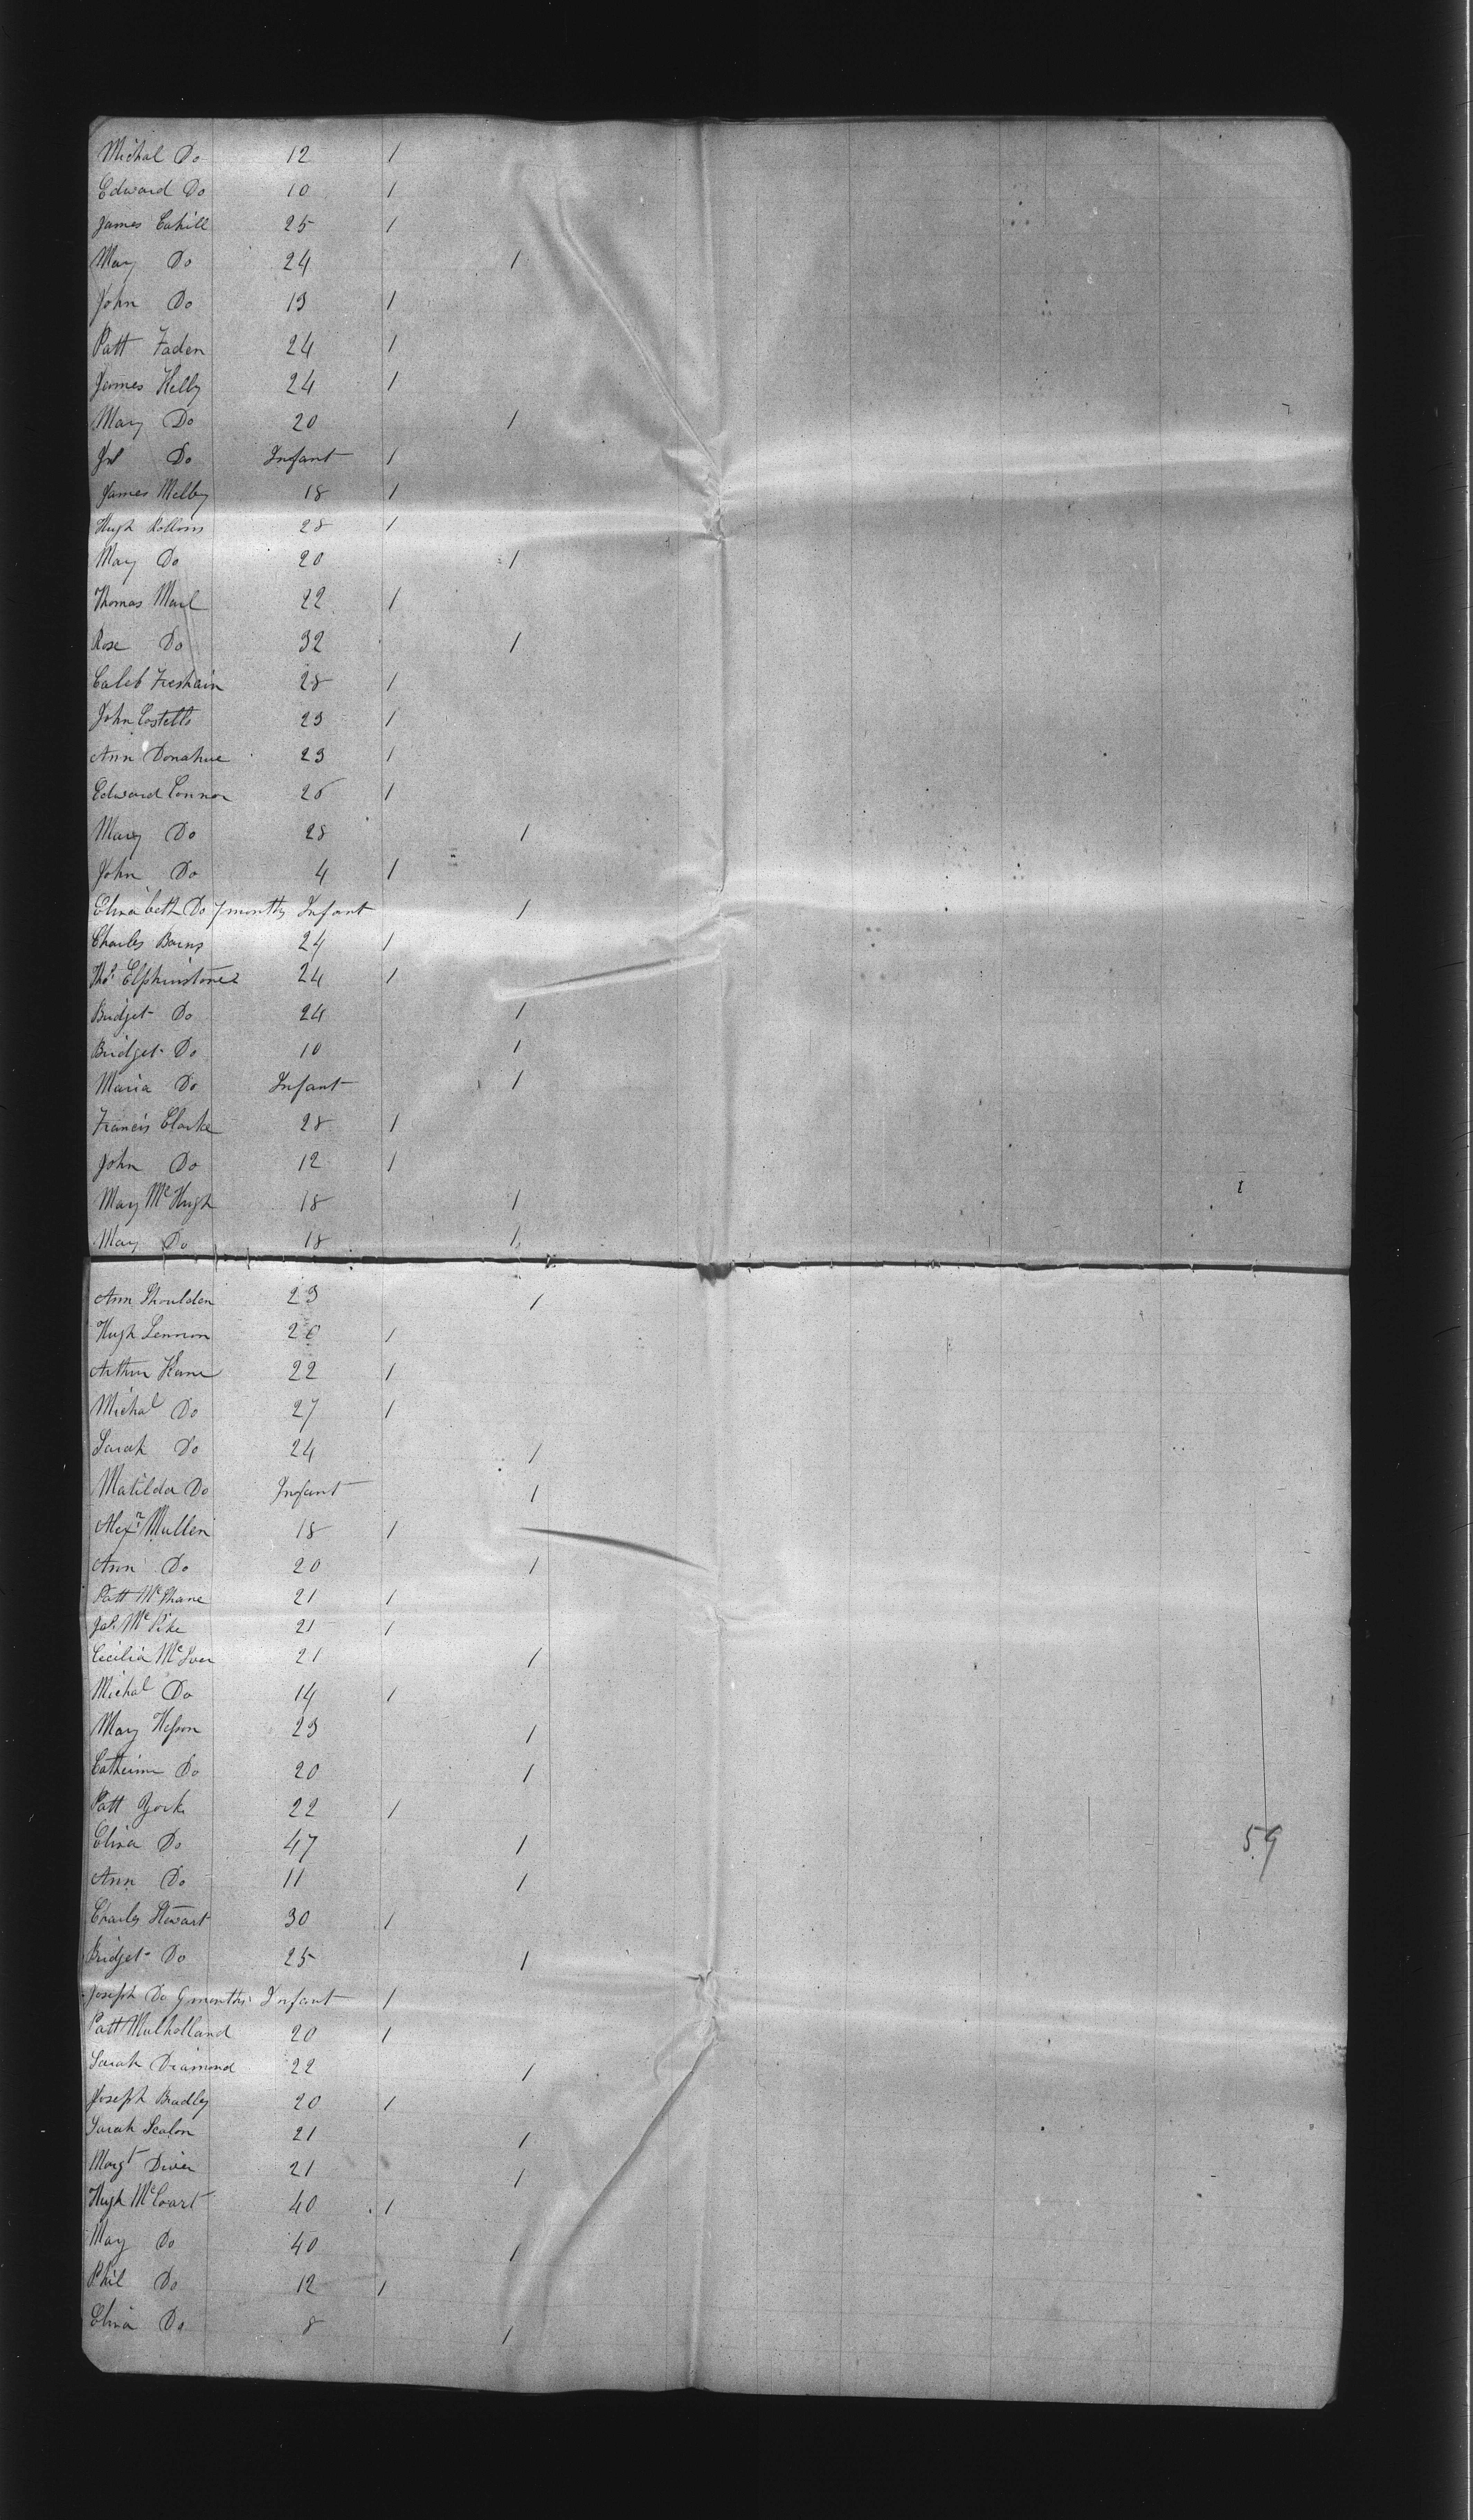 Michal Do 12 1
Edward Do 10 1
James Cahill 25 1
Mary Do 24 1
John Do 13 1
Patt Faden 24 1
James Kelly 24 1
Mary Do 20 1
Do Infant 1
James Melby 18 1
Hugh Rollins 28 1
Mary Do 20 1
Thomas 22 1
Rose Do 32 1
Caleb 28 1
John Costello 23 1
Ann Donahue 23 1
Edward Connor 26 1
Mary Do 28 1
John Do 4 1
Eliza beth Do 7 months Infant 1
Charles Barns 24 1
Thos Elphinstone 24 1
Bridget Do 24 1
Bridget Do 10 1
Maria Do Infant 1
Francis Clarke 28 1
John Do 12 1
Mary McHugh 18 1
Mary Do 18 1
Ann Shoulden 23 1
Hugh Lennon 20 1
Arthur Kane 22 1
Michal Do 27 1
Sarah Do 24 1
Matilda Do Infant 1
Alexr Mullen 18 1
Ann Do 20 1
Patt McShane 21 1
Jas McPike 21 1
Cecilia McIver 21 1
Michal Do 14 1
Mary Heson 23 1
Catherine Do 20 1
Patt York 22 1
Eliza Do 47 1
59
Ann Do 11 1
Charles Stewart 30 1
Bridget Do 25 1
Joseph Do 9 months Infant 1
Patt Mulholland 20 1
Sarah Diamond 22 1
Joseph Bradley 20 1
Sarah Scalon 21 1
Margt Diver 21 1
Hugh McCourt 40 1
Mary Do 40 1
Phil Do 12 1
Eliza Do 8 1